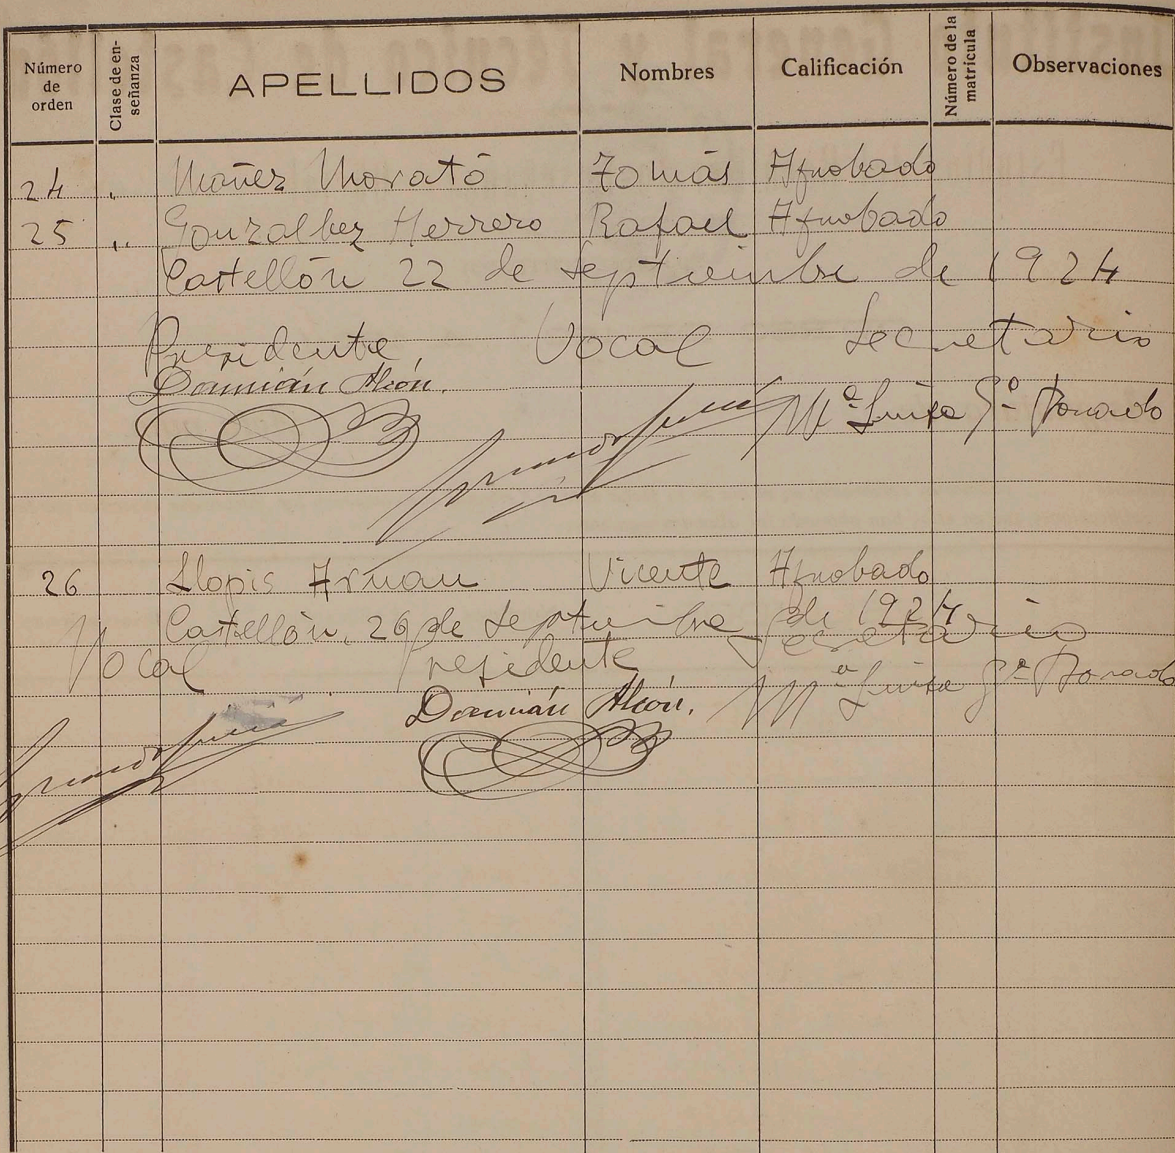 Número de orden Clase de en-señanza APELLIDOS Nombres Calificación Número de la matrícula Observaciones
24 " Morató Tomás Aprobado
25 " Gonzalbez Herrero Rafael Aprobado
Castellón 22 de Septiembre de 1924
Presidente, Vocal Secretario
Damián Alcón. Mª Luisa Gª Dorado
26 Llopis Arnau Vicente Aprobado
Castellón, 26 de Septiembre de 1924
Vocal Presidente Secretario
Damián Alcón. Mª Luisa Gª Dorado